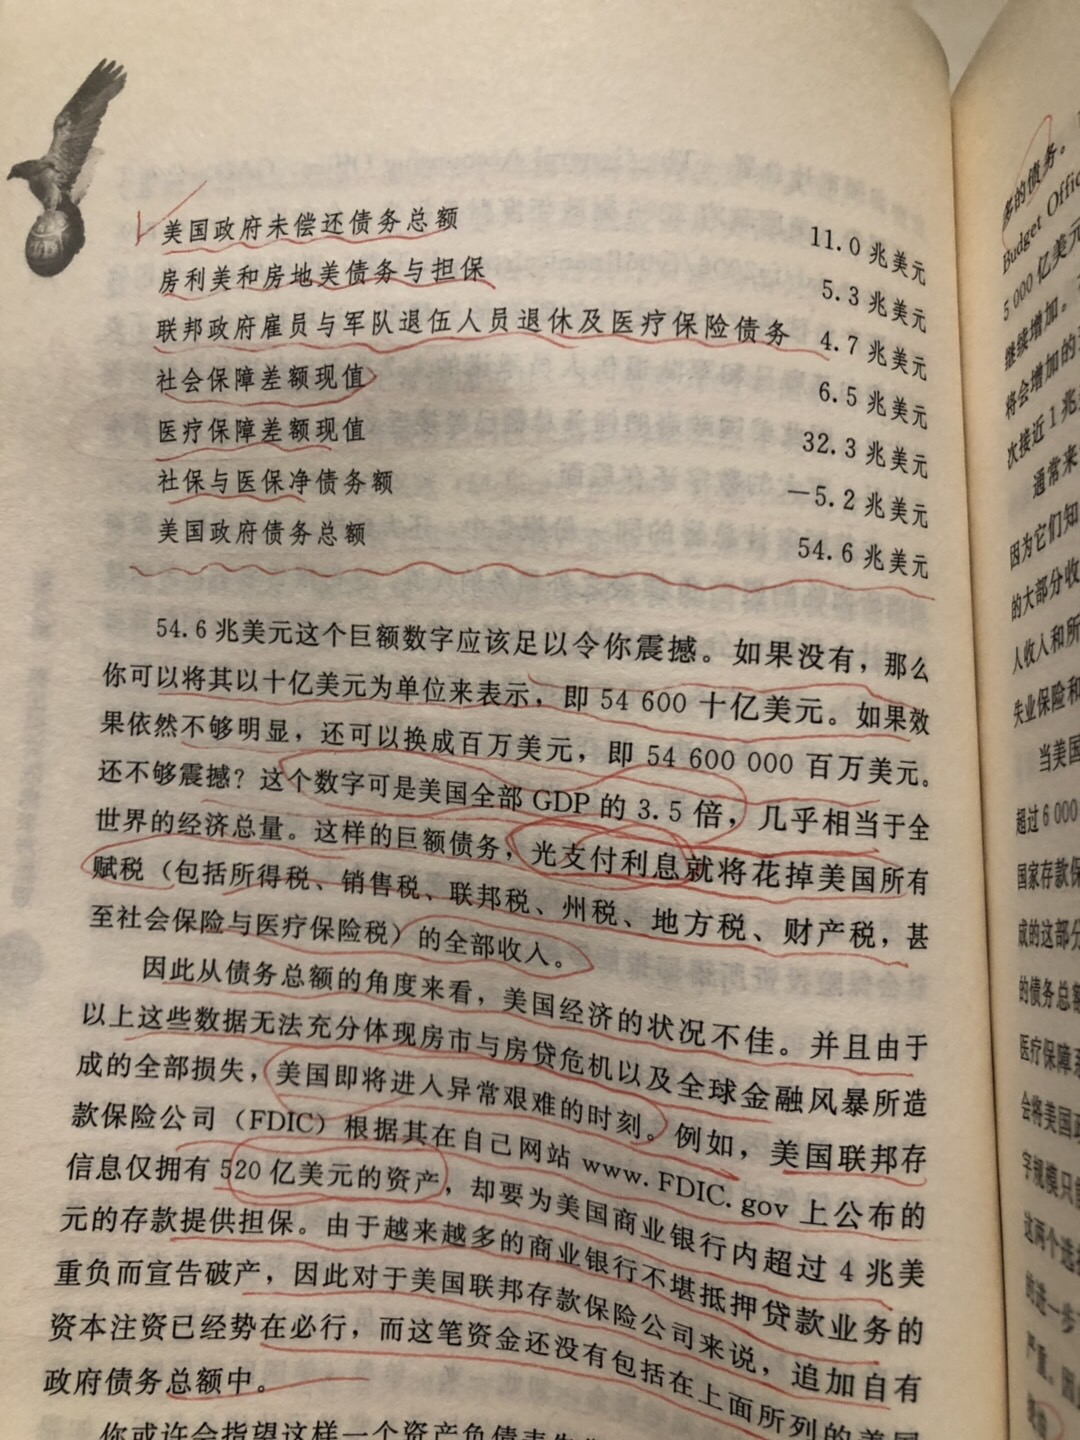 美国政府未偿还债务总额 11.0 兆美元
房利美和房地美债务与担保 5.3 兆美元
联邦政府雇员与军队退伍人员退休及医疗保险债务 4.7 兆美元
社会保障差额现值 6.5 兆美元
医疗保障差额现值 32.3 兆美元
社保与医保净债务额 －5.2 兆美元
美国政府债务总额 54.6 兆美元
54.6 兆美元这个巨额数字应该足以令你震撼。如果没有，那么
你可以将其以十亿美元为单位来表示，即 54 600 十亿美元。如果效
果依然不够明显，还可以换成百万美元，即 54 600 000 百万美元。
还不够震撼？这个数字可是美国全部 GDP 的 3.5 倍，几乎相当于全
世界的经济总量。这样的巨额债务，光支付利息就将花掉美国所有
赋税（包括所得税、销售税、联邦税、州税、地方税、财产税，甚
至社会保险与医疗保险税）的全部收入。
因此从债务总额的角度来看，美国经济的状况不佳。并且由于
以上这些数据无法充分体现房市与房贷危机以及全球金融风暴所造
成的全部损失，美国即将进入异常艰难的时刻。例如，美国联邦存
款保险公司（FDIC）根据其在自己网站 www.FDIC.gov 上公布的
信息仅拥有 520 亿美元的资产，却要为美国商业银行内超过 4 兆美
元的存款提供担保。由于越来越多的商业银行不堪抵押贷款业务的
重负而宣告破产，因此对于美国联邦存款保险公司来说，追加自有
资本注资已经势在必行，而这笔资金还没有包括在上面所列的美国
政府债务总额中。
你或许会指望这样一个资产负债表
多的债务。
Budget Offic
5 000 亿美元
继续增加。
将会增加的
次接近 1 兆
通常来
因为它们知
的大部分收
人收入和所
失业保险和
当美国
超过 6 000
国家存款保
成的这部分
的债务总额
医疗保障系
会将美国政
字规模只能
这两个选择
的进一步
严重。因